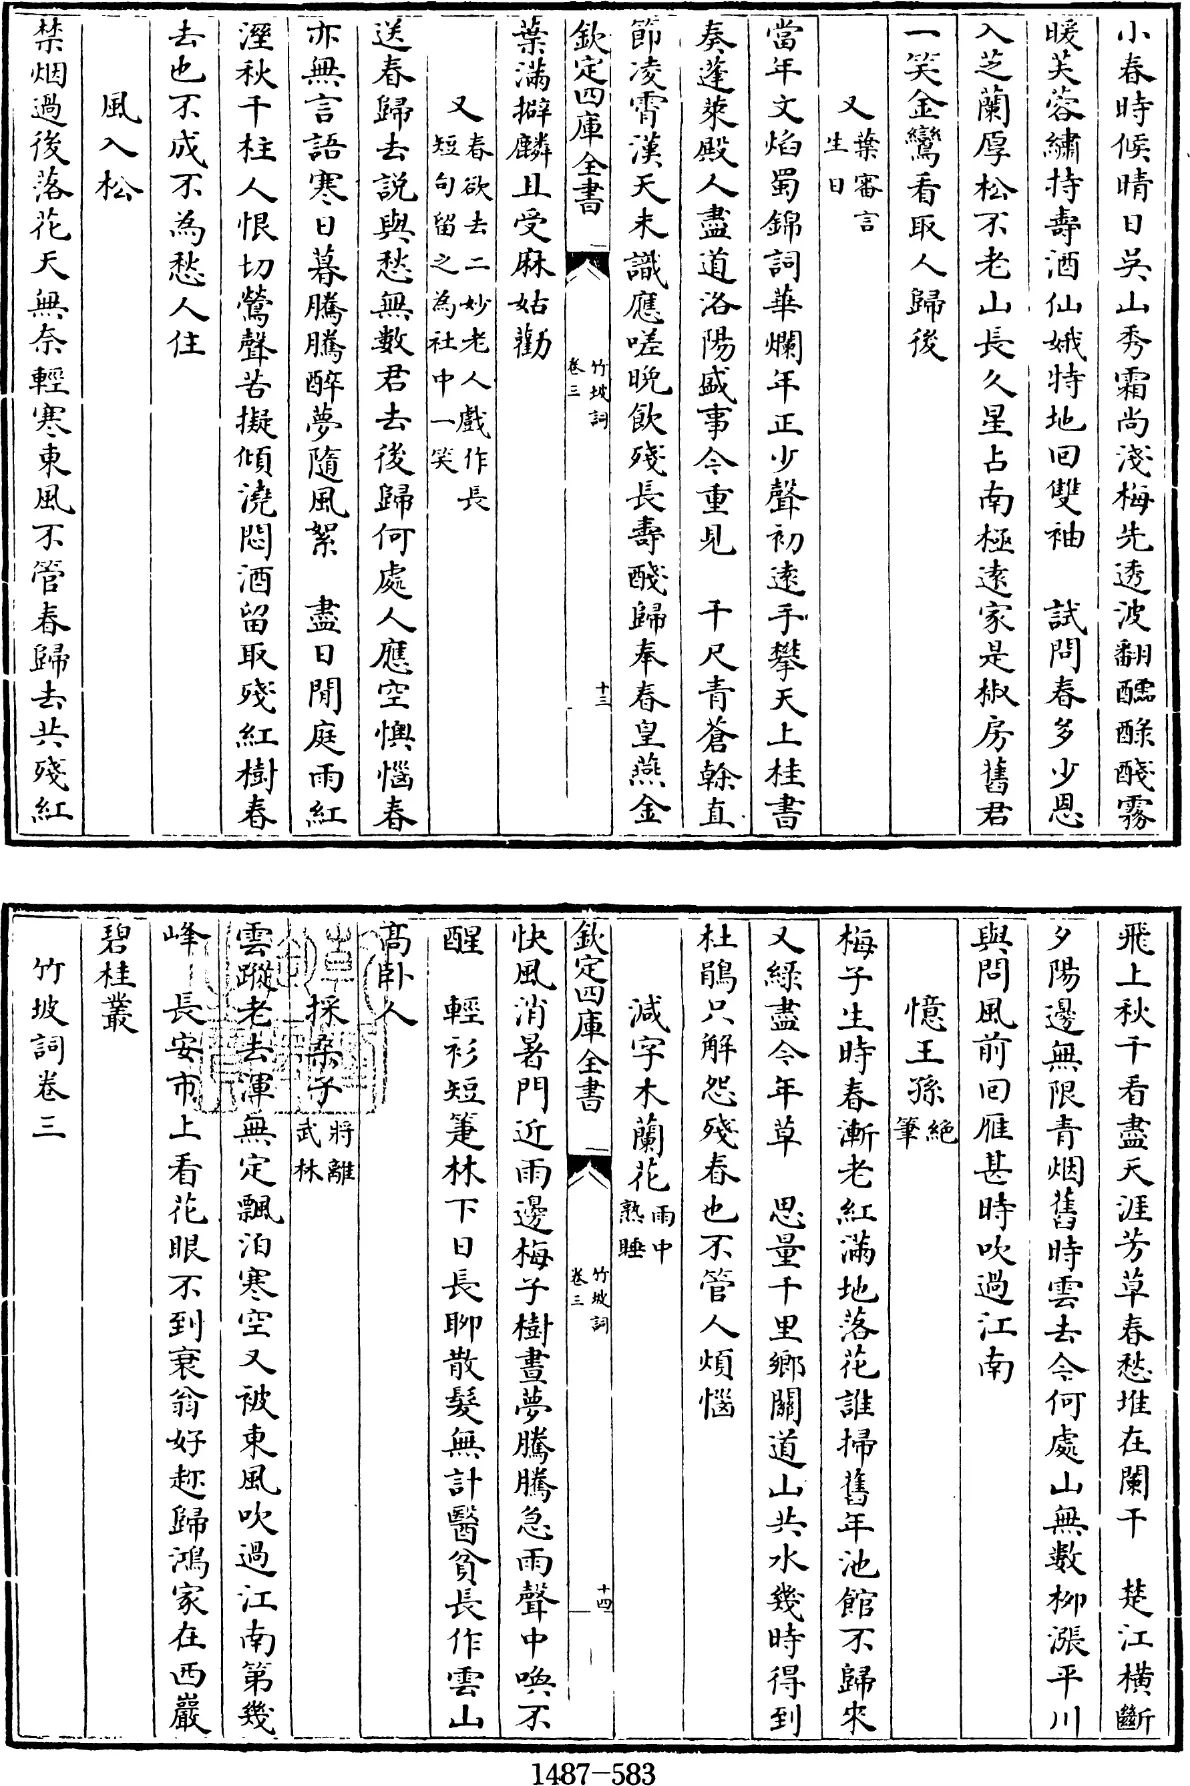 小春時候晴日吳山秀霜尚淺梅先透波翻醽醁醆霧
暖芙蓉繡持壽酒仙娥特地回雙袖　試問春多少恩
入芝蘭厚松不老山長久星占南極遠家是椒房舊君
一笑金鸞看取人歸後
又葉審言生日
當年文焰蜀錦詞華爛年正少聲初遠手攀天上桂書
奏蓬萊殿人盡道洛陽盛事今重見　千尺青蒼榦直
節凌霄漢天未識應嗟晩飲殘長壽醆歸奉春皇燕金
欽定四庫全書
竹坡詞
卷三
十三
葉滿擗麟且受麻姑勸
又春欲去二妙老人戲作長短句留之為社中一笑
送春歸去説與愁無數君去後歸何處人應空懊惱春
亦無言語寒日暮騰騰醉夢隨風絮　盡日閒庭雨紅
溼秋千柱人恨切鶯聲苦擬傾澆悶酒留取殘紅樹春
去也不成不為愁人住
風入松
禁烟過後落花天無奈輕寒東風不管春歸去共殘紅
飛上秋千看盡天涯芳草春愁堆在闌干　楚江橫斷
夕陽邊無限青烟舊時雲去今何處山無數柳漲平川
與問風前回雁甚時吹過江南
憶王孫絕筆
梅子生時春漸老紅滿地落花誰掃舊年池館不歸來
又綠盡今年草　思量千里鄉關道山共水幾時得到
杜鵑只解怨殘春也不管人煩惱
減字木蘭花雨中熟睡
欽定四庫全書
竹坡詞
卷三
十四
快風消暑門近雨邊梅子樹晝夢騰騰急雨聲中喚不
醒　輕衫短箑林下日長聊散髮無計醫貧長作雲山
高卧人
採桑子將離武林
雲蹤老去渾無定飄泊寒空又被東風吹過江南第幾
峰　長安市上看花眼不到衰翁好趂歸鴻家在西巖
碧桂叢
竹坡詞卷三
1487-583